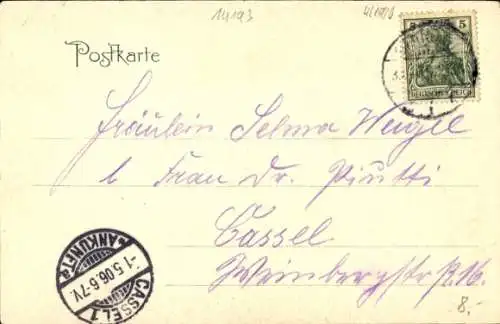 14193
Postkarte
5 5
DEUTSCHES REICH
Fräulein Selma Weigel
b. Frau Dr. Piutti
Cassel
Weinbergstr. 16.
*ANKUNFT*
-1.5.06.6-7V.
CASSEL 1
8,-